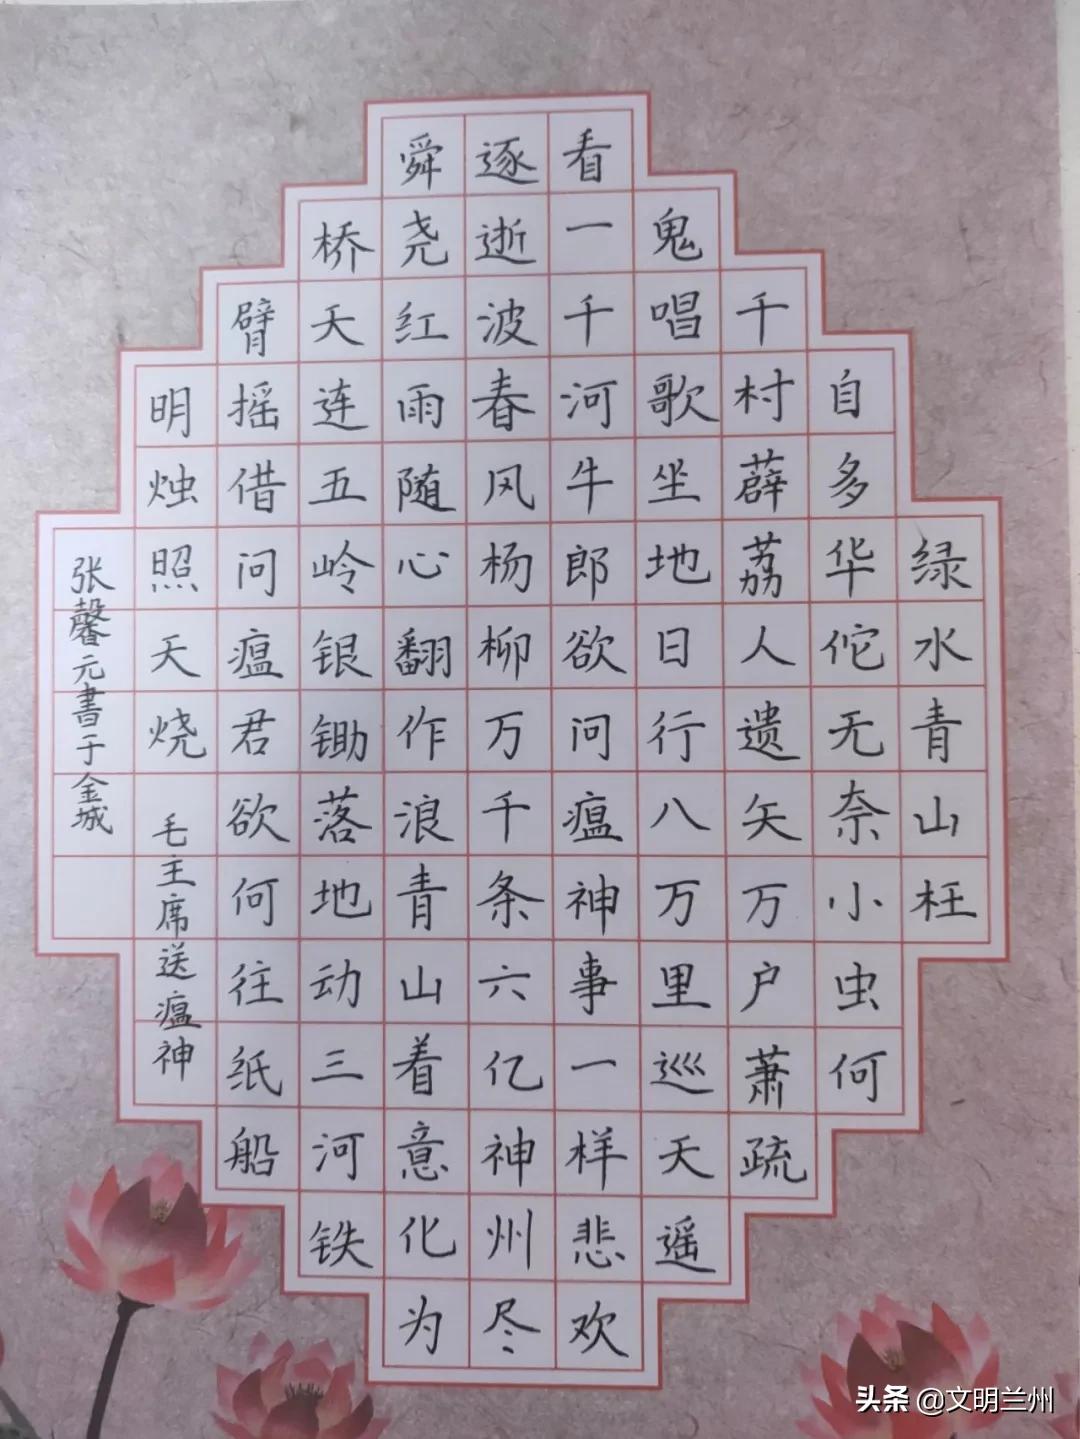 绿水青山枉
自多华佗无奈小虫何
千村薜荔人遗矢万户萧疏
鬼唱歌坐地日行八万里巡天遥
看一千河牛郎欲问瘟神事一样悲欢
逐逝波春风杨柳万千条六亿神州尽
舜尧红雨随心翻作浪青山着意化为
桥天连五岭银锄落地动三河铁
臂摇借问瘟君欲何往纸船
明烛照天烧 毛主席送瘟神
张馨元書于金城
头条 @文明兰州